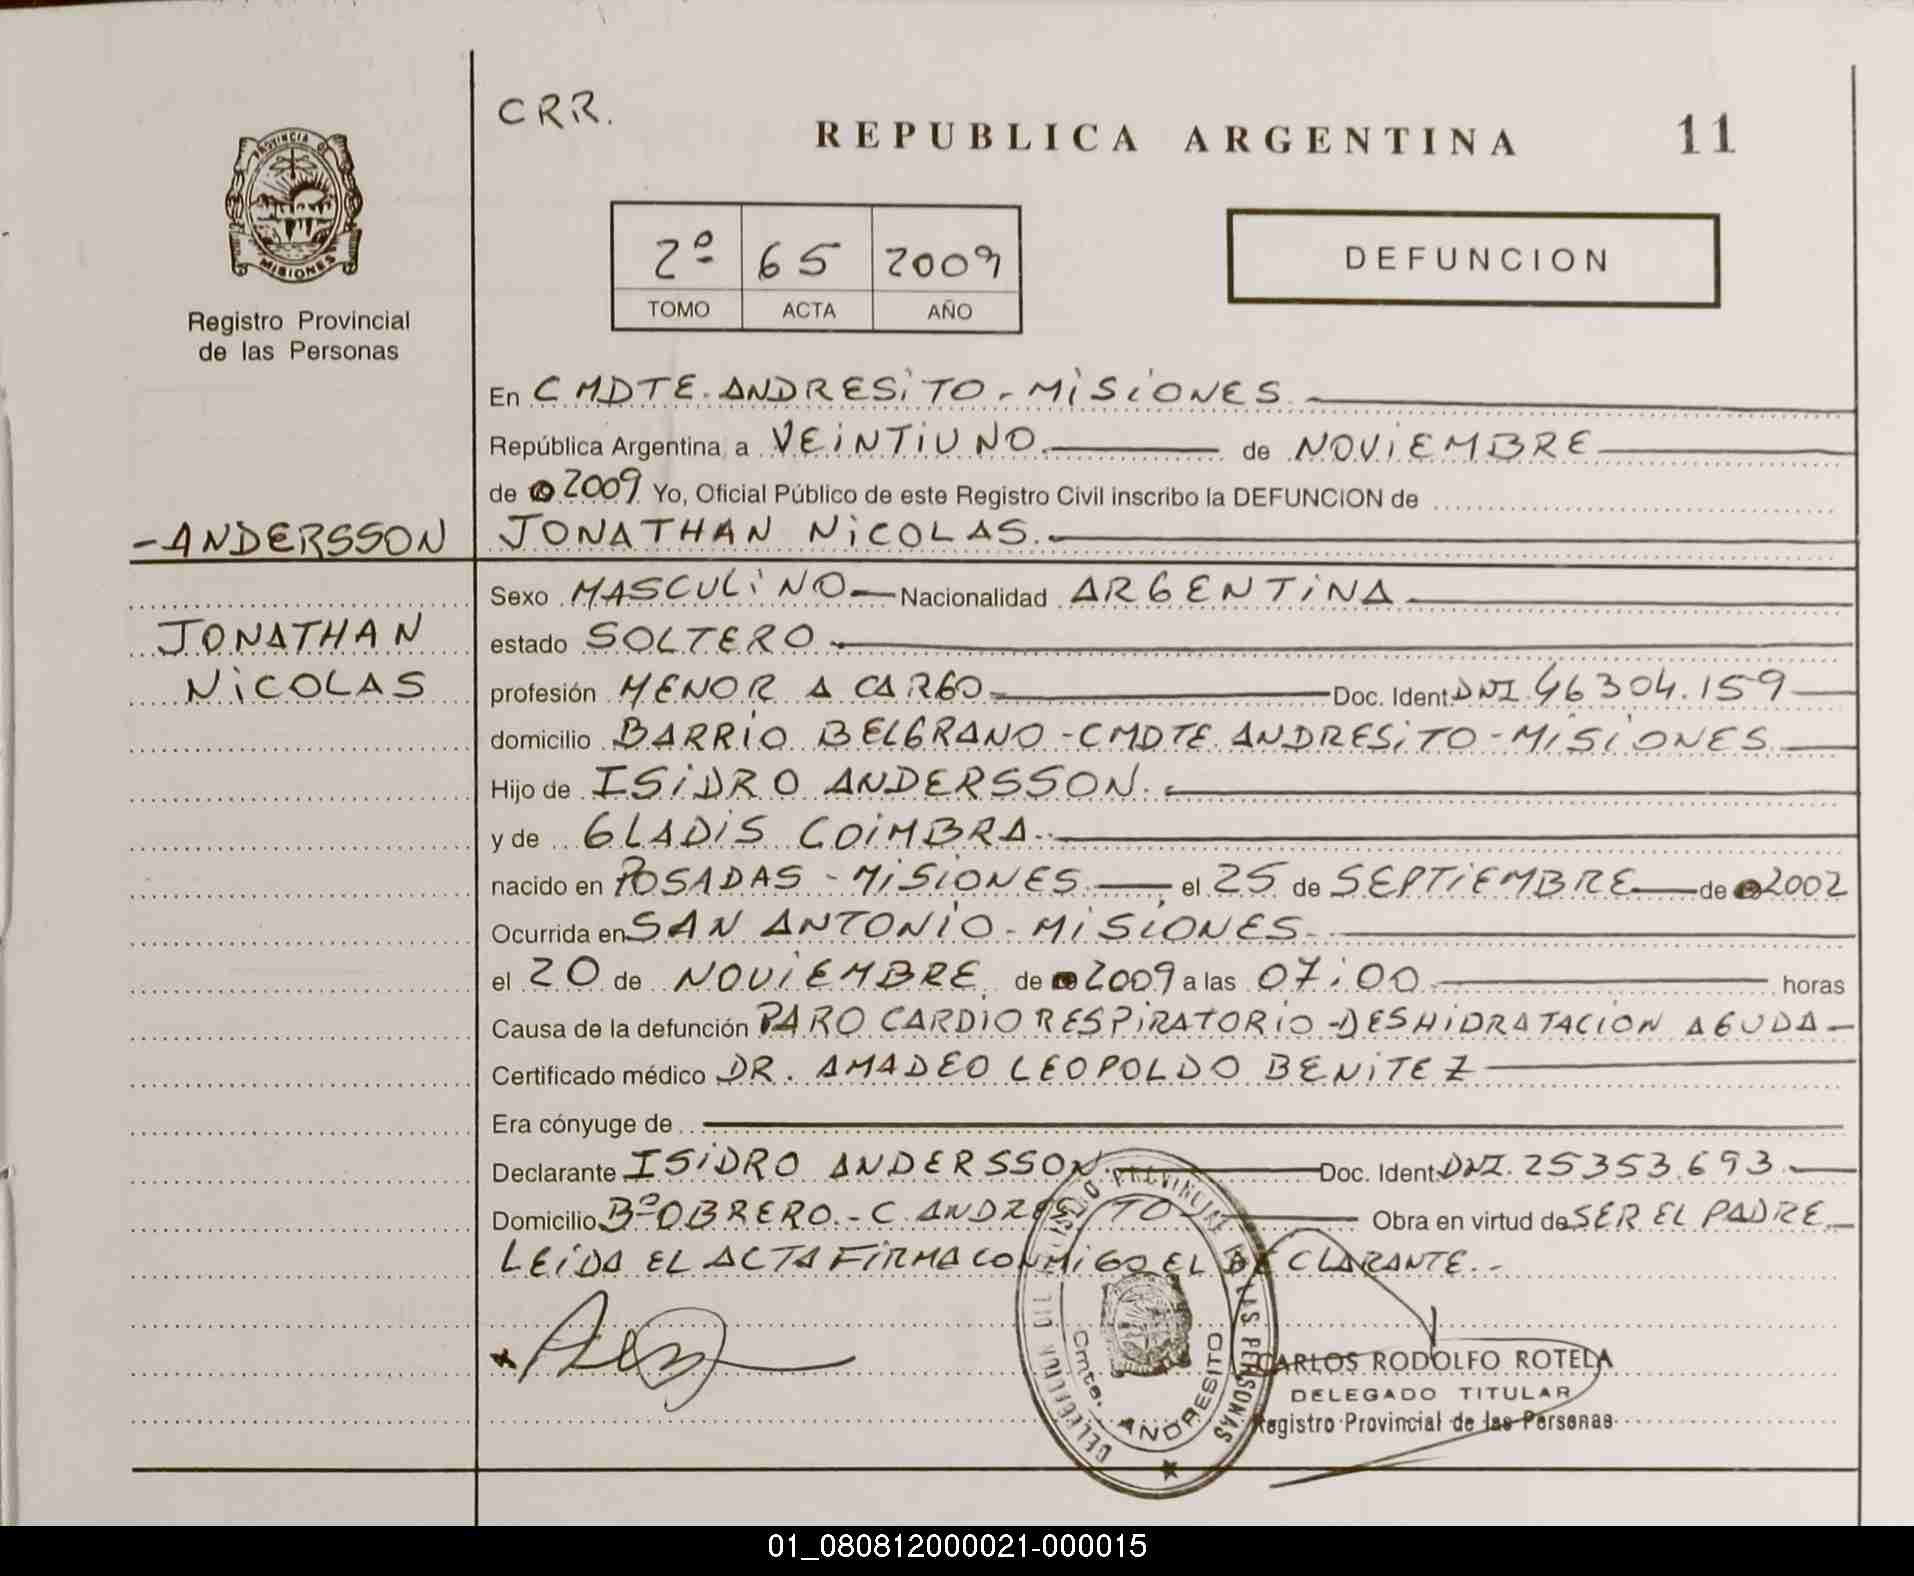 CRR.
REPUBLICA ARGENTINA 11
PROVINCIA DE
MISIONES
Registro Provincial
de las Personas
2º 65 2009
TOMO ACTA AÑO
DEFUNCION
En CMDTE. ANDRESITO - MISIONES
República Argentina, a VEINTIUNO de NOVIEMBRE
de 2009 Yo, Oficial Público de este Registro Civil inscribo la DEFUNCION de
-ANDERSSON JONATHAN NICOLAS.
JONATHAN
NICOLAS
Sexo MASCULINO Nacionalidad ARGENTINA
estado SOLTERO
profesión MENOR A CARGO Doc. Ident. DNI. 46304.159
domicilio BARRIO BELGRANO - CMDTE. ANDRESITO - MISIONES
Hijo de ISIDRO ANDERSSON.
y de GLADIS COIMBRA.
nacido en POSADAS - MISIONES, el 25 de SEPTIEMBRE de 2002
Ocurrida en SAN ANTONIO - MISIONES
el 20 de NOVIEMBRE de 2009 a las 07:00 horas
Causa de la defunción PARO CARDIORESPIRATORIO - DESHIDRATACION AGUDA
Certificado médico DR. AMADEO LEOPOLDO BENITEZ
Era cónyuge de
Declarante ISIDRO ANDERSSON. Doc. Ident. DNI. 25353.693
Domicilio Bº OBRERO. - C. ANDRESITO Obra en virtud de SER EL PADRE
LEIDA EL ACTA FIRMA CONMIGO EL DECLARANTE.-
DELEGACION DEL REGISTRO PROVINCIAL DE LAS PERSONAS
Cmte. ANDRESITO
CARLOS RODOLFO ROTELA
DELEGADO TITULAR
Registro Provincial de las Personas
01_080812000021-000015